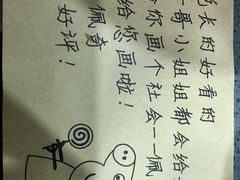 长的好看的
哥小姐姐都会给
你画个社会——佩
给您画啦！
佩奇
好评！